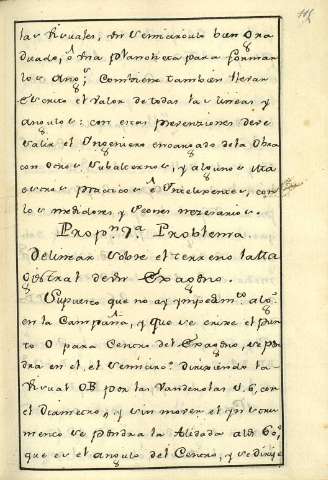 las visuales, un semicirculo bien gra
duado, ô una plancheta para formar
los angs; Combiene tambien llevar
escrito el valor de todas las lineas, y
angulos: con estas prevenciones deve
salir el Ingeniero encargado de la Obra
con otros subalternos, y algunos Ma
estros practicos é Inteligentes, con
los medidores, y peones necesarios.
Propn. 7a. Problema.
Delinear sobre el terreno la Ma
gistral de un Exagono.
Supuesto que no ay impedimto. algo.
en la Campaña, y que se elixe el pun
to O para Centro del Exagono, se pon
dra en el, el semicirco. dirixiendo la
visual OB por las Vanderolas 5, 6, con
el diametro, y sin mover el ynstru
mento se pondra la Alidada a los 60,
que es el angulo del Centro, y se dirije